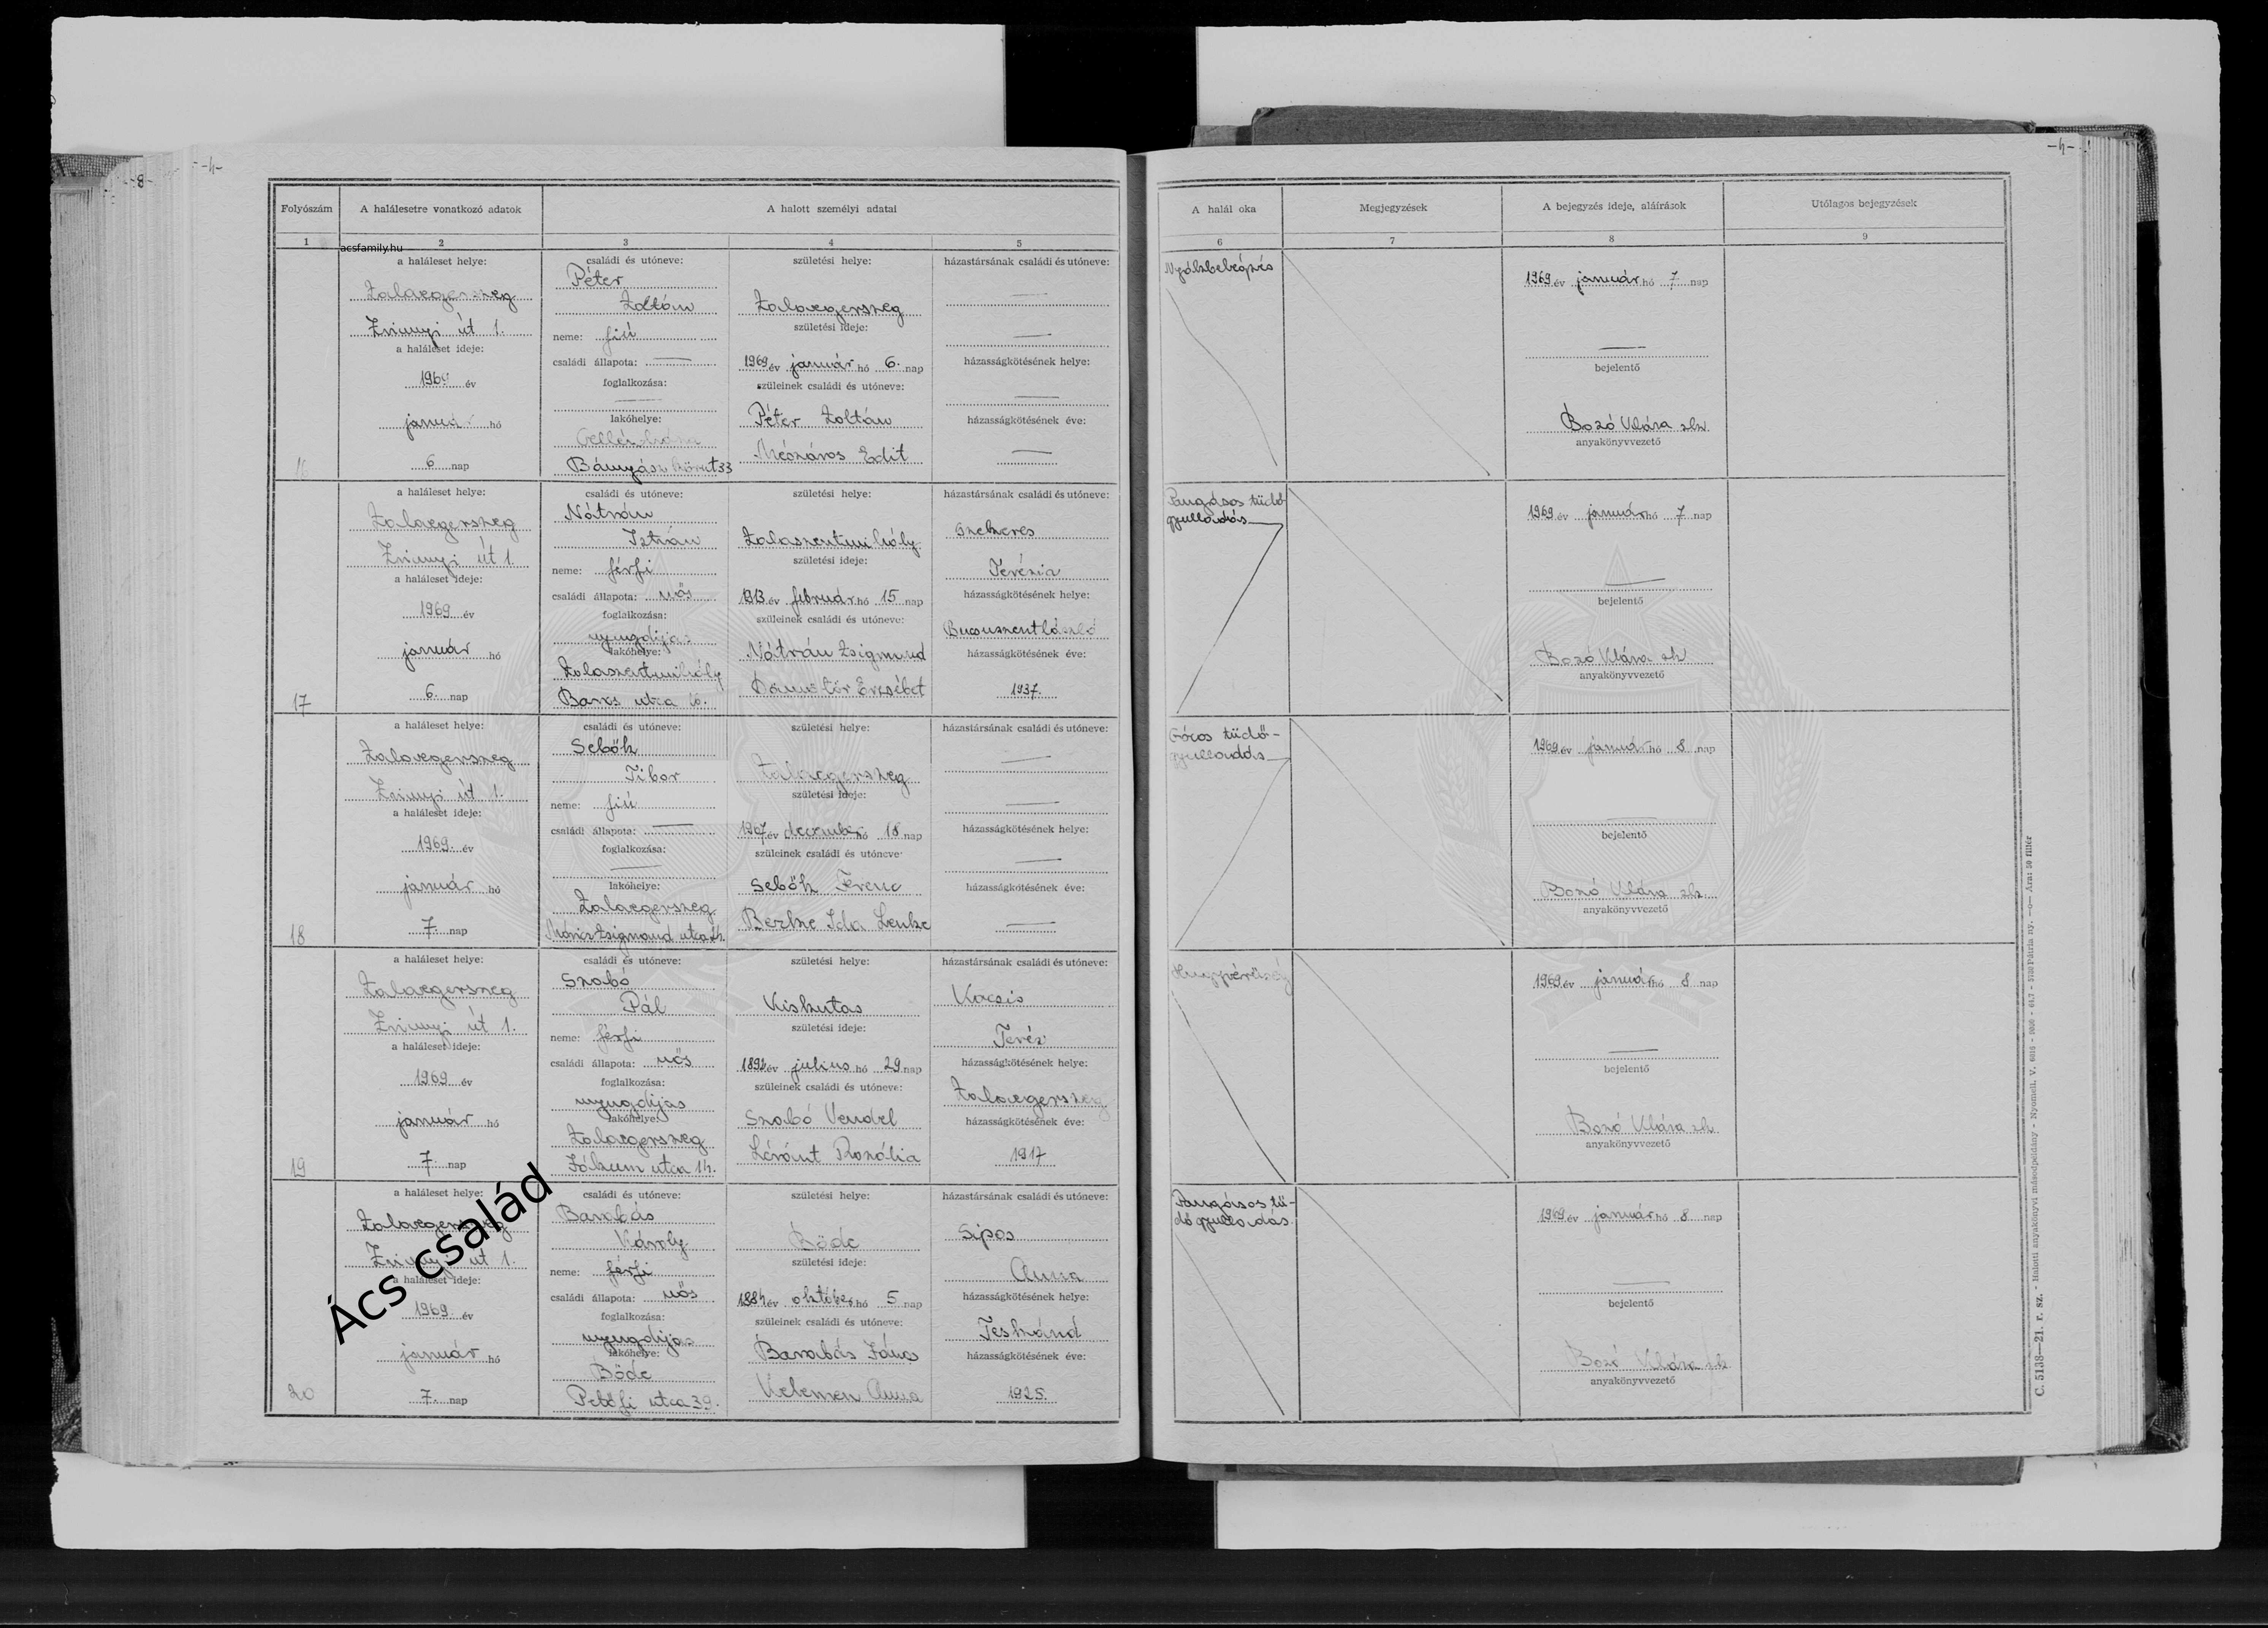 -4-
-8-
-4-
Folyószám
A halálesetre vonatkozó adatok
A halott személyi adatai
A halál oka
Megjegyzések
A bejegyzés ideje, aláírások
Utólagos bejegyzések
1
2
3
4
5
6
7
8
9
acsfamily.hu
16
a haláleset helye:
Zalaegerszeg
Zrinyi út 1.
a haláleset ideje:
1969 év
január hó
6 nap
családi és utóneve:
Péter
Zoltán
neme: fiú
családi állapota: —
foglalkozása:
—
lakóhelye:
Bányász körút 33
születési helye:
Zalaegerszeg
születési ideje:
1969 év január hó 6. nap
szüleinek családi és utóneve:
Péter Zoltán
Mészáros Edit
házastársának családi és utóneve:
—
—
házasságkötésének helye:
—
házasságkötésének éve:
—
1969 év január hó 7 nap
—
bejelentő
Bozó Klára sk.
anyakönyvvezető
17
a haláleset helye:
Zalaegerszeg
Zrinyi út 1.
a haláleset ideje:
1969 év
január hó
6. nap
családi és utóneve:
Nátrán
István
neme: férfi
családi állapota: nős
foglalkozása:
nyugdijas
lakóhelye:
Zalaszentmihály
utca 16.
születési helye:
Zalaszentmihály
születési ideje:
1913 év február hó 15 nap
szüleinek családi és utóneve:
Nátrán Zsigmond
Erzsébet
házastársának családi és utóneve:
Szekeres
Terézia
házasságkötésének helye:
Bucsuszentlászló
házasságkötésének éve:
1937.
Pangásos tüdő-
gyulladás
1969 év január hó 7 nap
—
bejelentő
Bozó Klára sk
anyakönyvvezető
18
a haláleset helye:
Zalaegerszeg
Zrinyi út 1.
a haláleset ideje:
1969. év
január hó
7. nap
családi és utóneve:
Sebők
Tibor
neme: fiú
családi állapota: —
foglalkozása:
—
lakóhelye:
Zalaegerszeg
Móricz Zsigmond utca
születési helye:
Zalaegerszeg
születési ideje:
1967 év december hó 18 nap
szüleinek családi és utóneve:
Sebők Ferenc
Berke Ida Lenke
házastársának családi és utóneve:
—
—
házasságkötésének helye:
—
házasságkötésének éve:
—
Gócos tüdő-
gyulladás
1969 év január hó 8 nap
—
bejelentő
Bozó Klára sk.
anyakönyvvezető
19
a haláleset helye:
Zalaegerszeg
Zrinyi út 1.
a haláleset ideje:
1969 év
január hó
7. nap
családi és utóneve:
Szabó
Pál
neme: férfi
családi állapota: nős
foglalkozása:
nyugdijas
lakóhelye:
Zalaegerszeg
utca 14.
születési helye:
Kiskutas
születési ideje:
1892 év julius hó 29 nap
szüleinek családi és utóneve:
Szabó Vendel
Lóránt Rozália
házastársának családi és utóneve:
Kocsis
Teréz
házasságkötésének helye:
Zalaegerszeg
házasságkötésének éve:
1917
Hugyvérüség
1969 év január hó 8 nap
—
bejelentő
Bozó Klára sk
anyakönyvvezető
20
a haláleset helye:
Zalaegerszeg
Zrinyi út 1.
a haláleset ideje:
1969. év
január hó
7. nap
családi és utóneve:
Barabás
Károly
neme: férfi
családi állapota: nős
foglalkozása:
nyugdijas
lakóhelye:
Böde
Petőfi utca 39.
születési helye:
Böde
születési ideje:
1884 év október hó 5 nap
szüleinek családi és utóneve:
Barabás János
Kelemen Anna
házastársának családi és utóneve:
Sipos
Anna
házasságkötésének helye:
Teskánd
házasságkötésének éve:
1925.
Pangásos tü-
dőgyulladás.
1969 év január hó 8 nap
—
bejelentő
Bozó Klára sk
anyakönyvvezető
Ács család
C. 5138—21. r. sz. - Halotti anyakönyvi másodpéldány - Nyomell. V.
Pátria ny. —o— Ára: 50 fillér